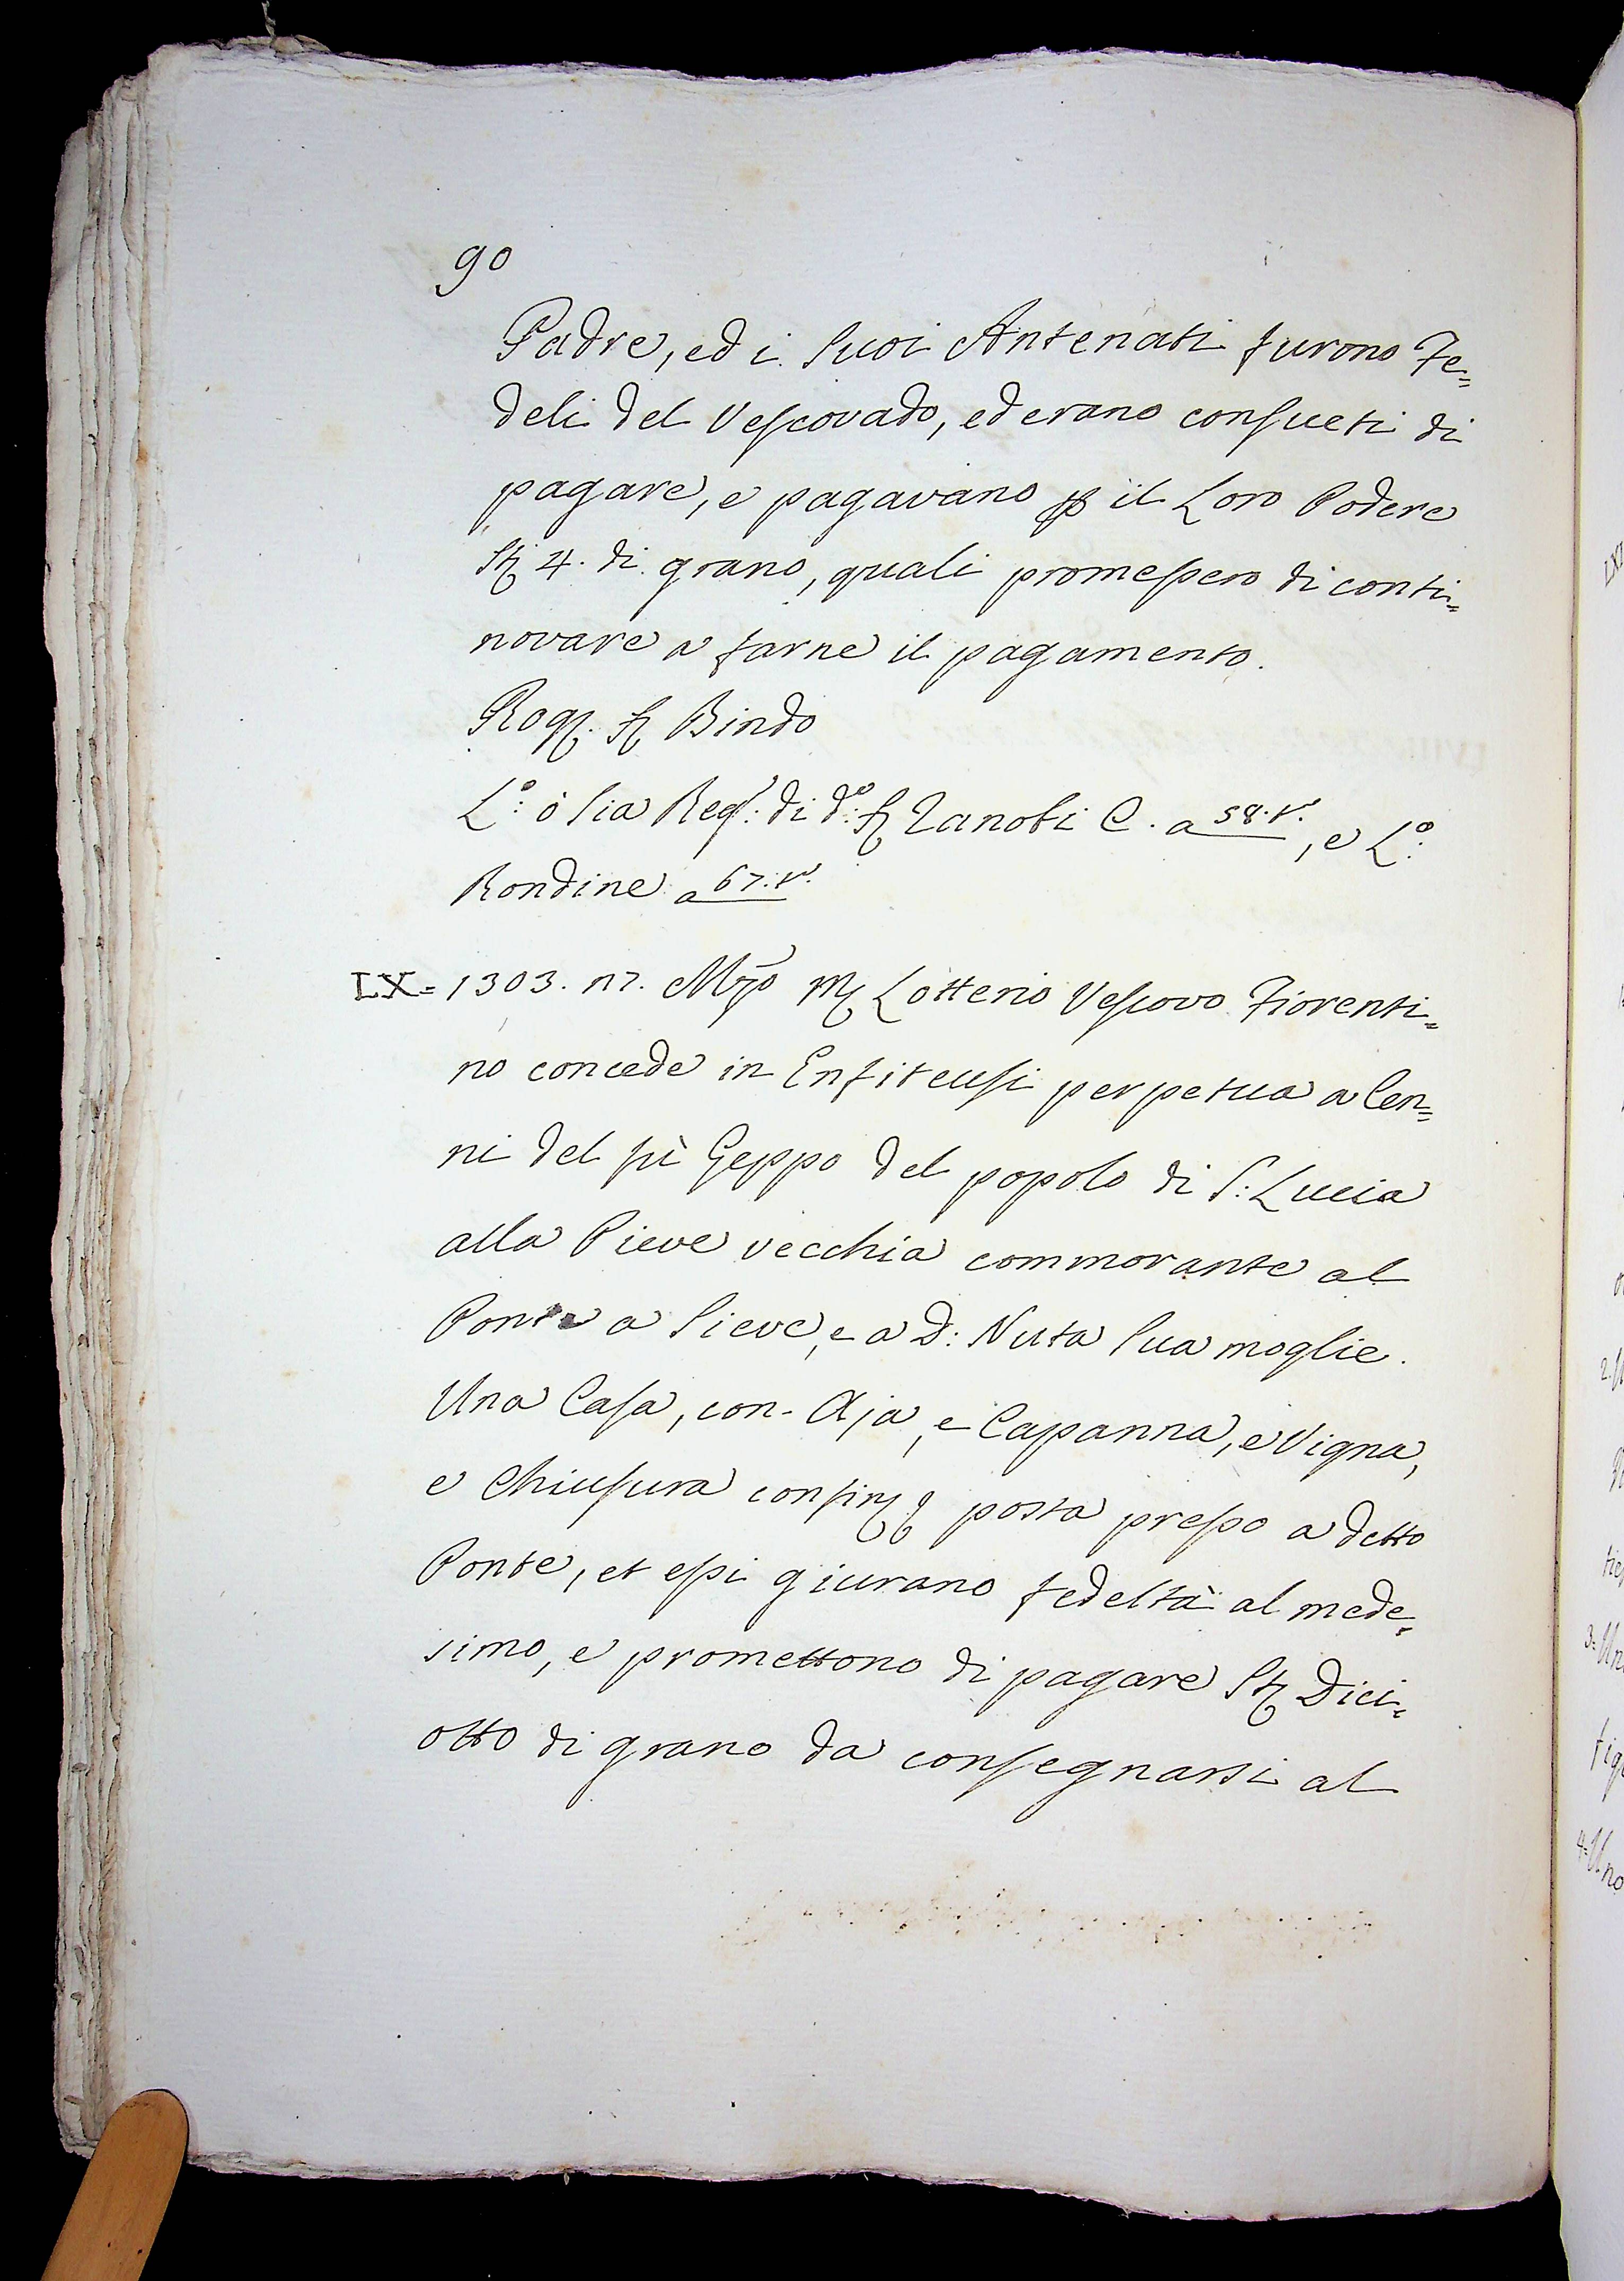 90
Padre, ed i Suoi Antenati furono Fe=
deli del Vescovado, ed erano consueti di
pagare, e pagavano p il Loro Podere
Stj 4. di grano, quali promessero di conti=
novare a farne il pagamento.
Rog. Sr Bindo
L.º ò sia Reg.: di d.º: Sr Zanobi C. a 58. vº, e L.º:
Rondine a 67. vº.
LX = 1303. 17. Mzo Mr Lotterio Vescovo Fiorenti=
no concede in Enfiteusi perpetua a Cen=
ni del fù Geppo del popolo di S: Lucia
alla Pieve vecchia commorante al
Ponte a Sieve, e a D: Nuta Sua moglie.
Una Casa, con Aja, e Capanna, e Vigna,
e Chiusura posta presso a detto
Ponte, et essi giurano fedeltà al mede=
simo, e promettono di pagare Stj Dici=
otto di grano da consegnarsi al